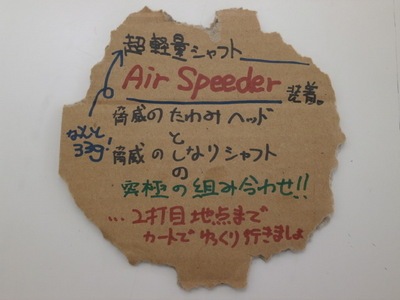 超軽量シャフト
Air Speeder 装着。
なんと
33g!
脅威のたわみヘッド
と
脅威のしなりシャフト
の
究極の組み合わせ!!
...2打目地点まで
カートでゆっくり行きましょ